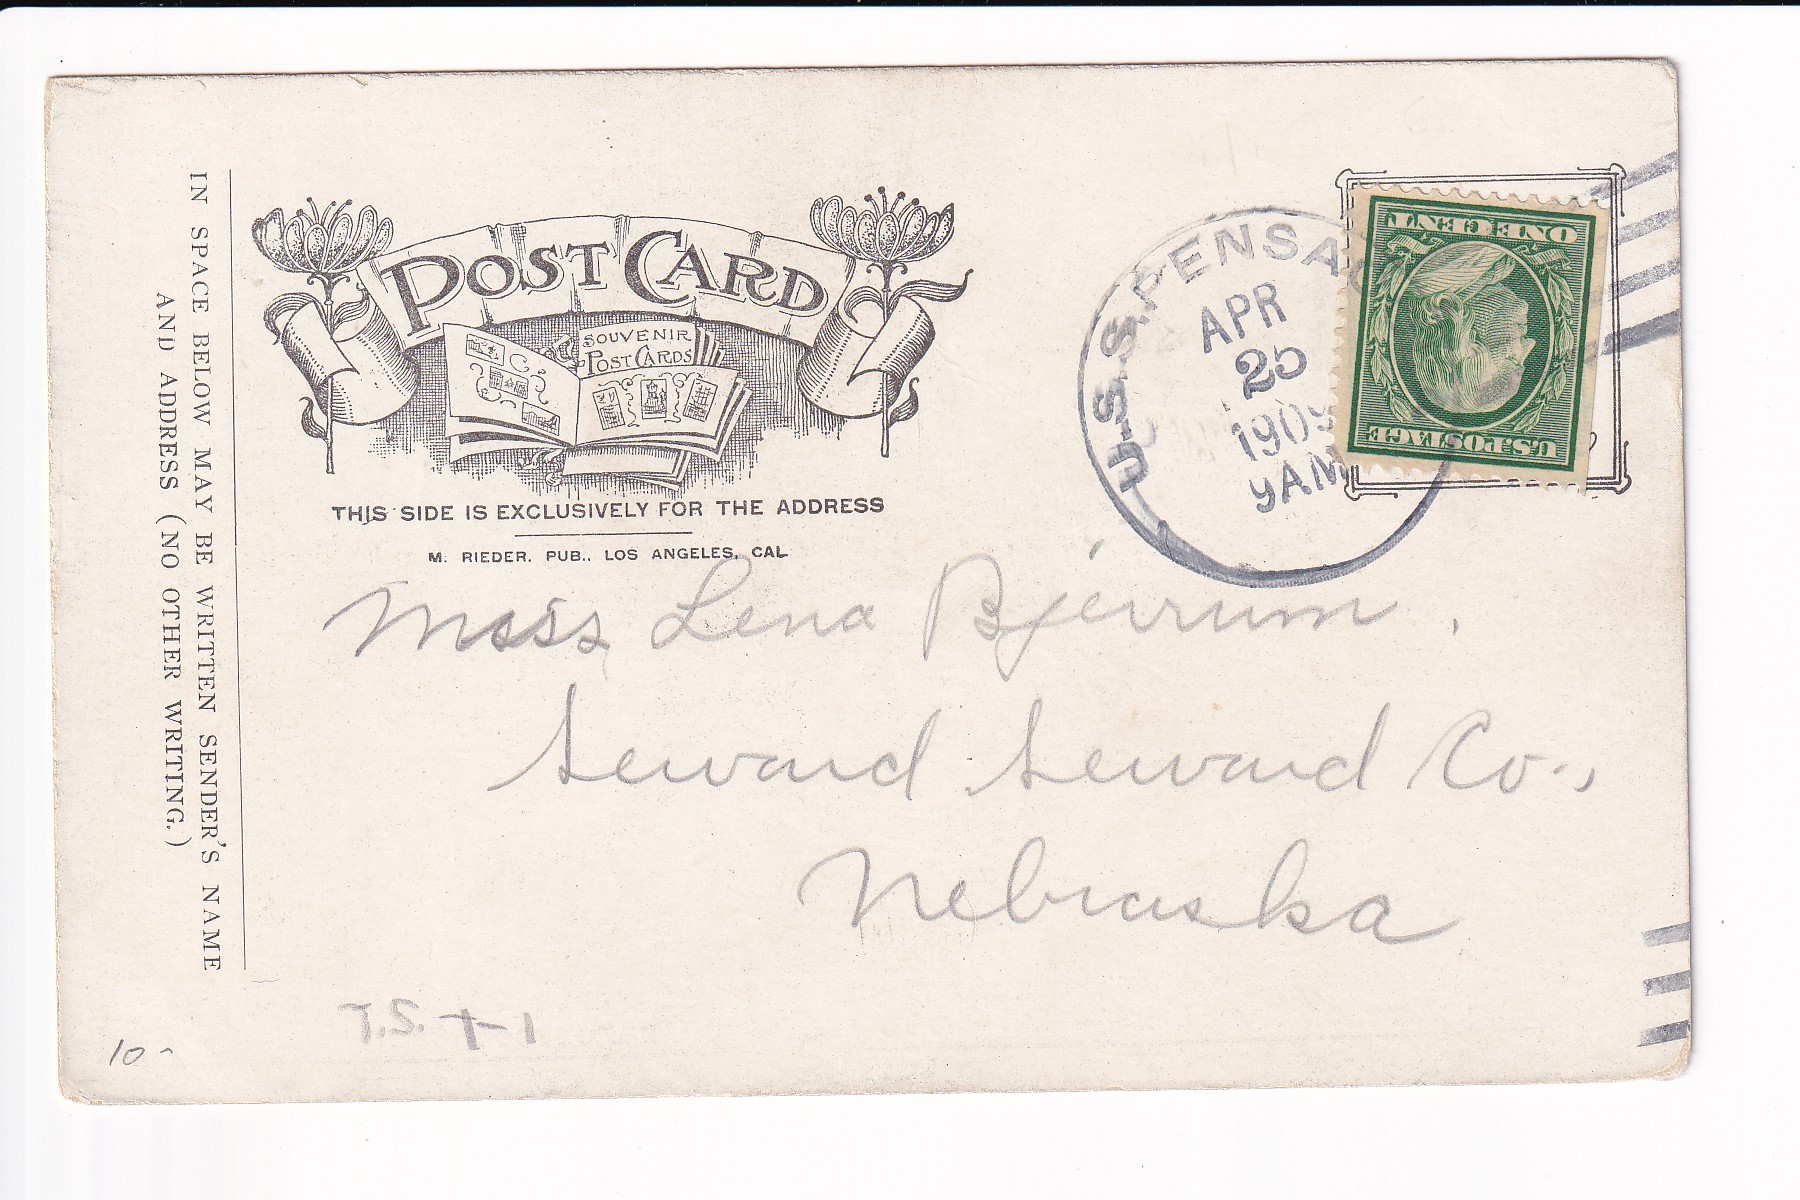 POST CARD
SOUVENIR
POST CARDS
THIS SIDE IS EXCLUSIVELY FOR THE ADDRESS
M. RIEDER. PUB., LOS ANGELES, CAL
IN SPACE BELOW MAY BE WRITTEN SENDER'S NAME
AND ADDRESS (NO OTHER WRITING.)
U.S.S. PENSAC
APR
25
1909
9AM
ONE CENT
U.S. POSTAGE
Miss Lena Bjerrum,
Seward Seward Co.,
Nebraska
T.S. +-1
10-